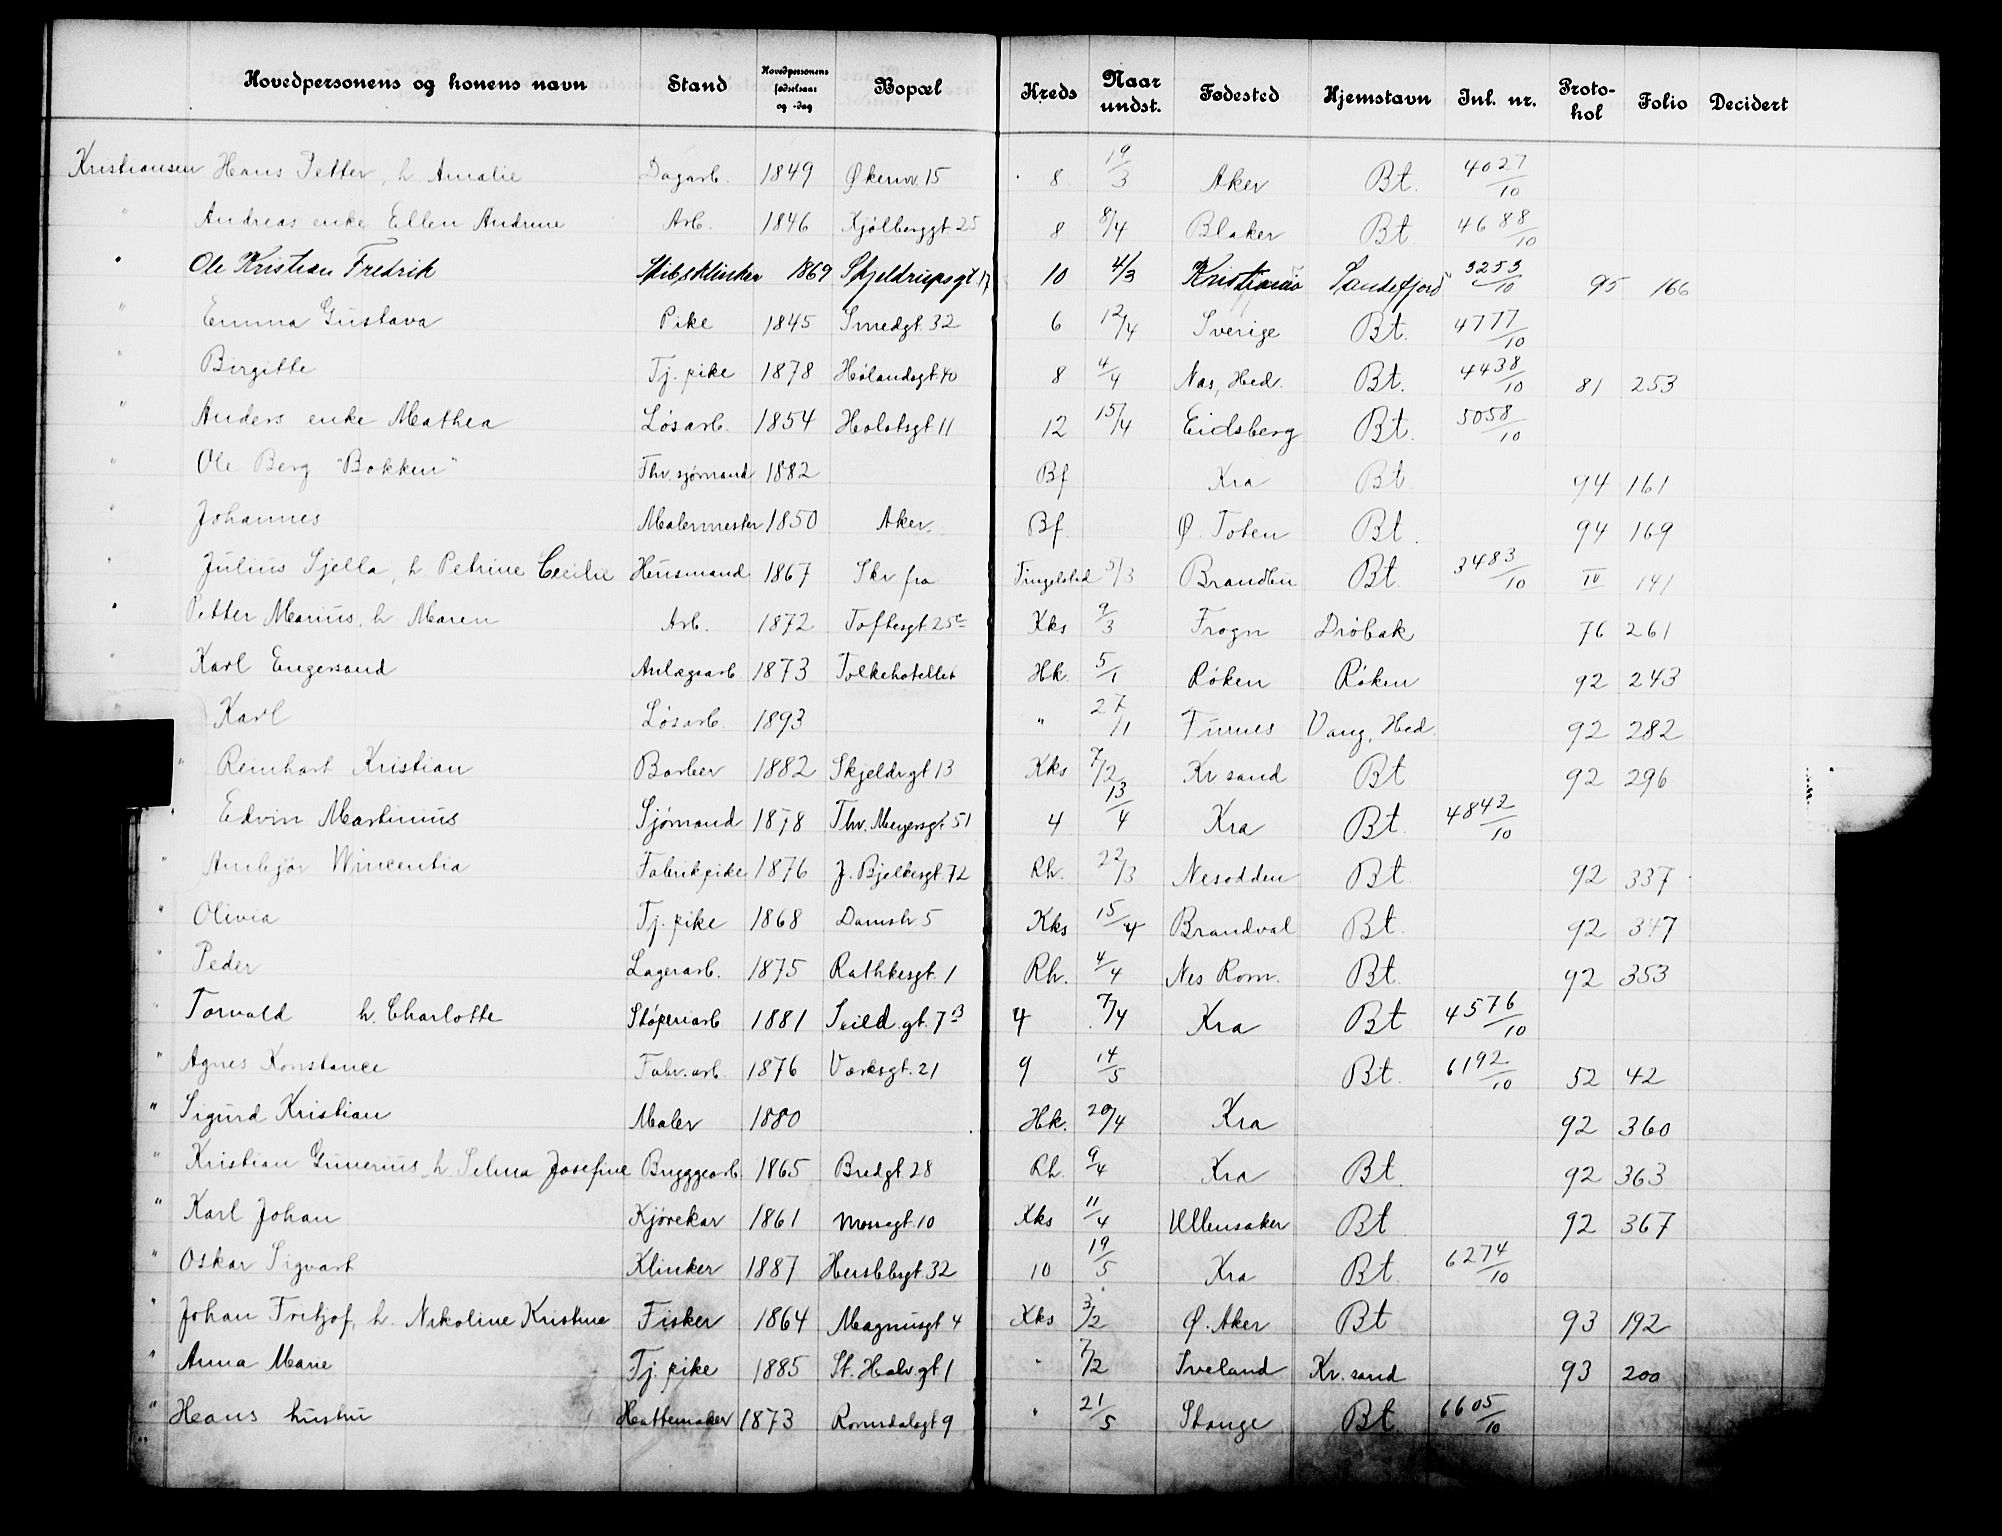 Hovedpersonens og konens navn Stand Hovedpersonens fødselsaar og -dag Bopæl Kreds Naar undst. Fødested Hjemstavn Inl. nr. Protokol Folio Decidert
Kristiansen Hans Petter, h. Amalie Dagarb. 1849 Økernv. 15 8 19/3 Aker Bt. 4027/10
" Andreas enke Ellen Andrine Arb. 1846 Kjølberggt 25 8 8/4 Blaker Bt. 4688/10
" Ole Kristian Fredrik Skibsklinker 1869 Skjeldrupsgt. 17 10 4/3 Kristiania Sandefjord 3253/10 95 166
" Emma Gustava Pike 1845 Smedgt. 32 6 12/4 Sverige Bt. 4777/10
" Birgitte Tj. pike 1878 Hølandsgt. 40 8 4/4 Nas, Hed. Bt. 4438/10 81 253
" Anders enke Mathea Løsarb. 1854 Holstsgt 11 12 15/4 Eidsberg Bt. 5058/10
" Ole Berg "Bokken" Fhv. sjømand 1882 Bf Kra Bt 94 161
" Johannes Malermester 1850 Aker. Bf. Ø. Toten Bt. 94 169
" Julius Sjella, h Petrine Cecilie Husmand 1867 Skr fra Tingelstad 5/3 Brandbu Bt. 3483/10 IV 141
" Petter Marius, h. Maren Arb. 1872 Toftesgt. 25c Kks 9/3 Frogn Drøbak 76 261
" Karl Engersand Anlægsarb. 1873 Folkehotellet Hk. 5/1 Røken Røken 92 243
" Karl Løsarb. 1893 " 27/11 Furnes Vang, Hed. 92 282
" Reinhart Kristian Barber 1882 Skjeldrgt 13 Kks 7/12 Kr sand Bt 92 296
" Edvin Martinius Sjømand 1878 Thv. Meyersgt 51 4 13/4 Kra Bt. 4842/10
" Annbjør Wincentia Fabrikpike 1876 J. Bjelkesgt. 72 Rh. 22/3 Nesodden Bt. 92 337
" Olivia Tj. pike 1868 Damstr 5 Kks 15/4 Brandval Bt. 92 347
" Peder Lagerarb. 1875 Rathkesgt. 1 Rh. 4/4 Nes Rom. Bt. 92 353
" Torvald h. Charlotte Støperiarb 1881 Seild.gt. 7 B 4 7/4 Kra Bt 4576/10
" Agnes Konstance Fabr.arb. 1876 Verksgt. 21 9 14/5 Bt. 6192/10 52 42
" Sigurd Kristian Maler 1880 Hk. 20/4 Kra 92 360
" Kristian Gunerius, h. Selma Josefine Bryggearb. 1865 Bredgt. 28 Rh. 9/4 Kra Bt. 92 363
" Karl Johan Kjørekar 1861 Mossegt. 10 Kks 11/4 Ullensaker Bt 92 367
" Oskar Sigvart Klinker 1887 Herslebsgt. 32 10 19/5 Kra Bt. 6274/10
" Johan Fritjof, h. Nikoline Kristine Fisker 1864 Magnusgt 4 Kks 3/2 Ø. Aker Bt 93 192
" Anna Marie Tj. pike 1885 St. Halv.gt. 1 " 7/2 Iveland Kr. sand 93 200
" Hans hustru Hattemaker 1873 Romsdalsgt 9 " 21/5 Stange Bt. 6605/10
"